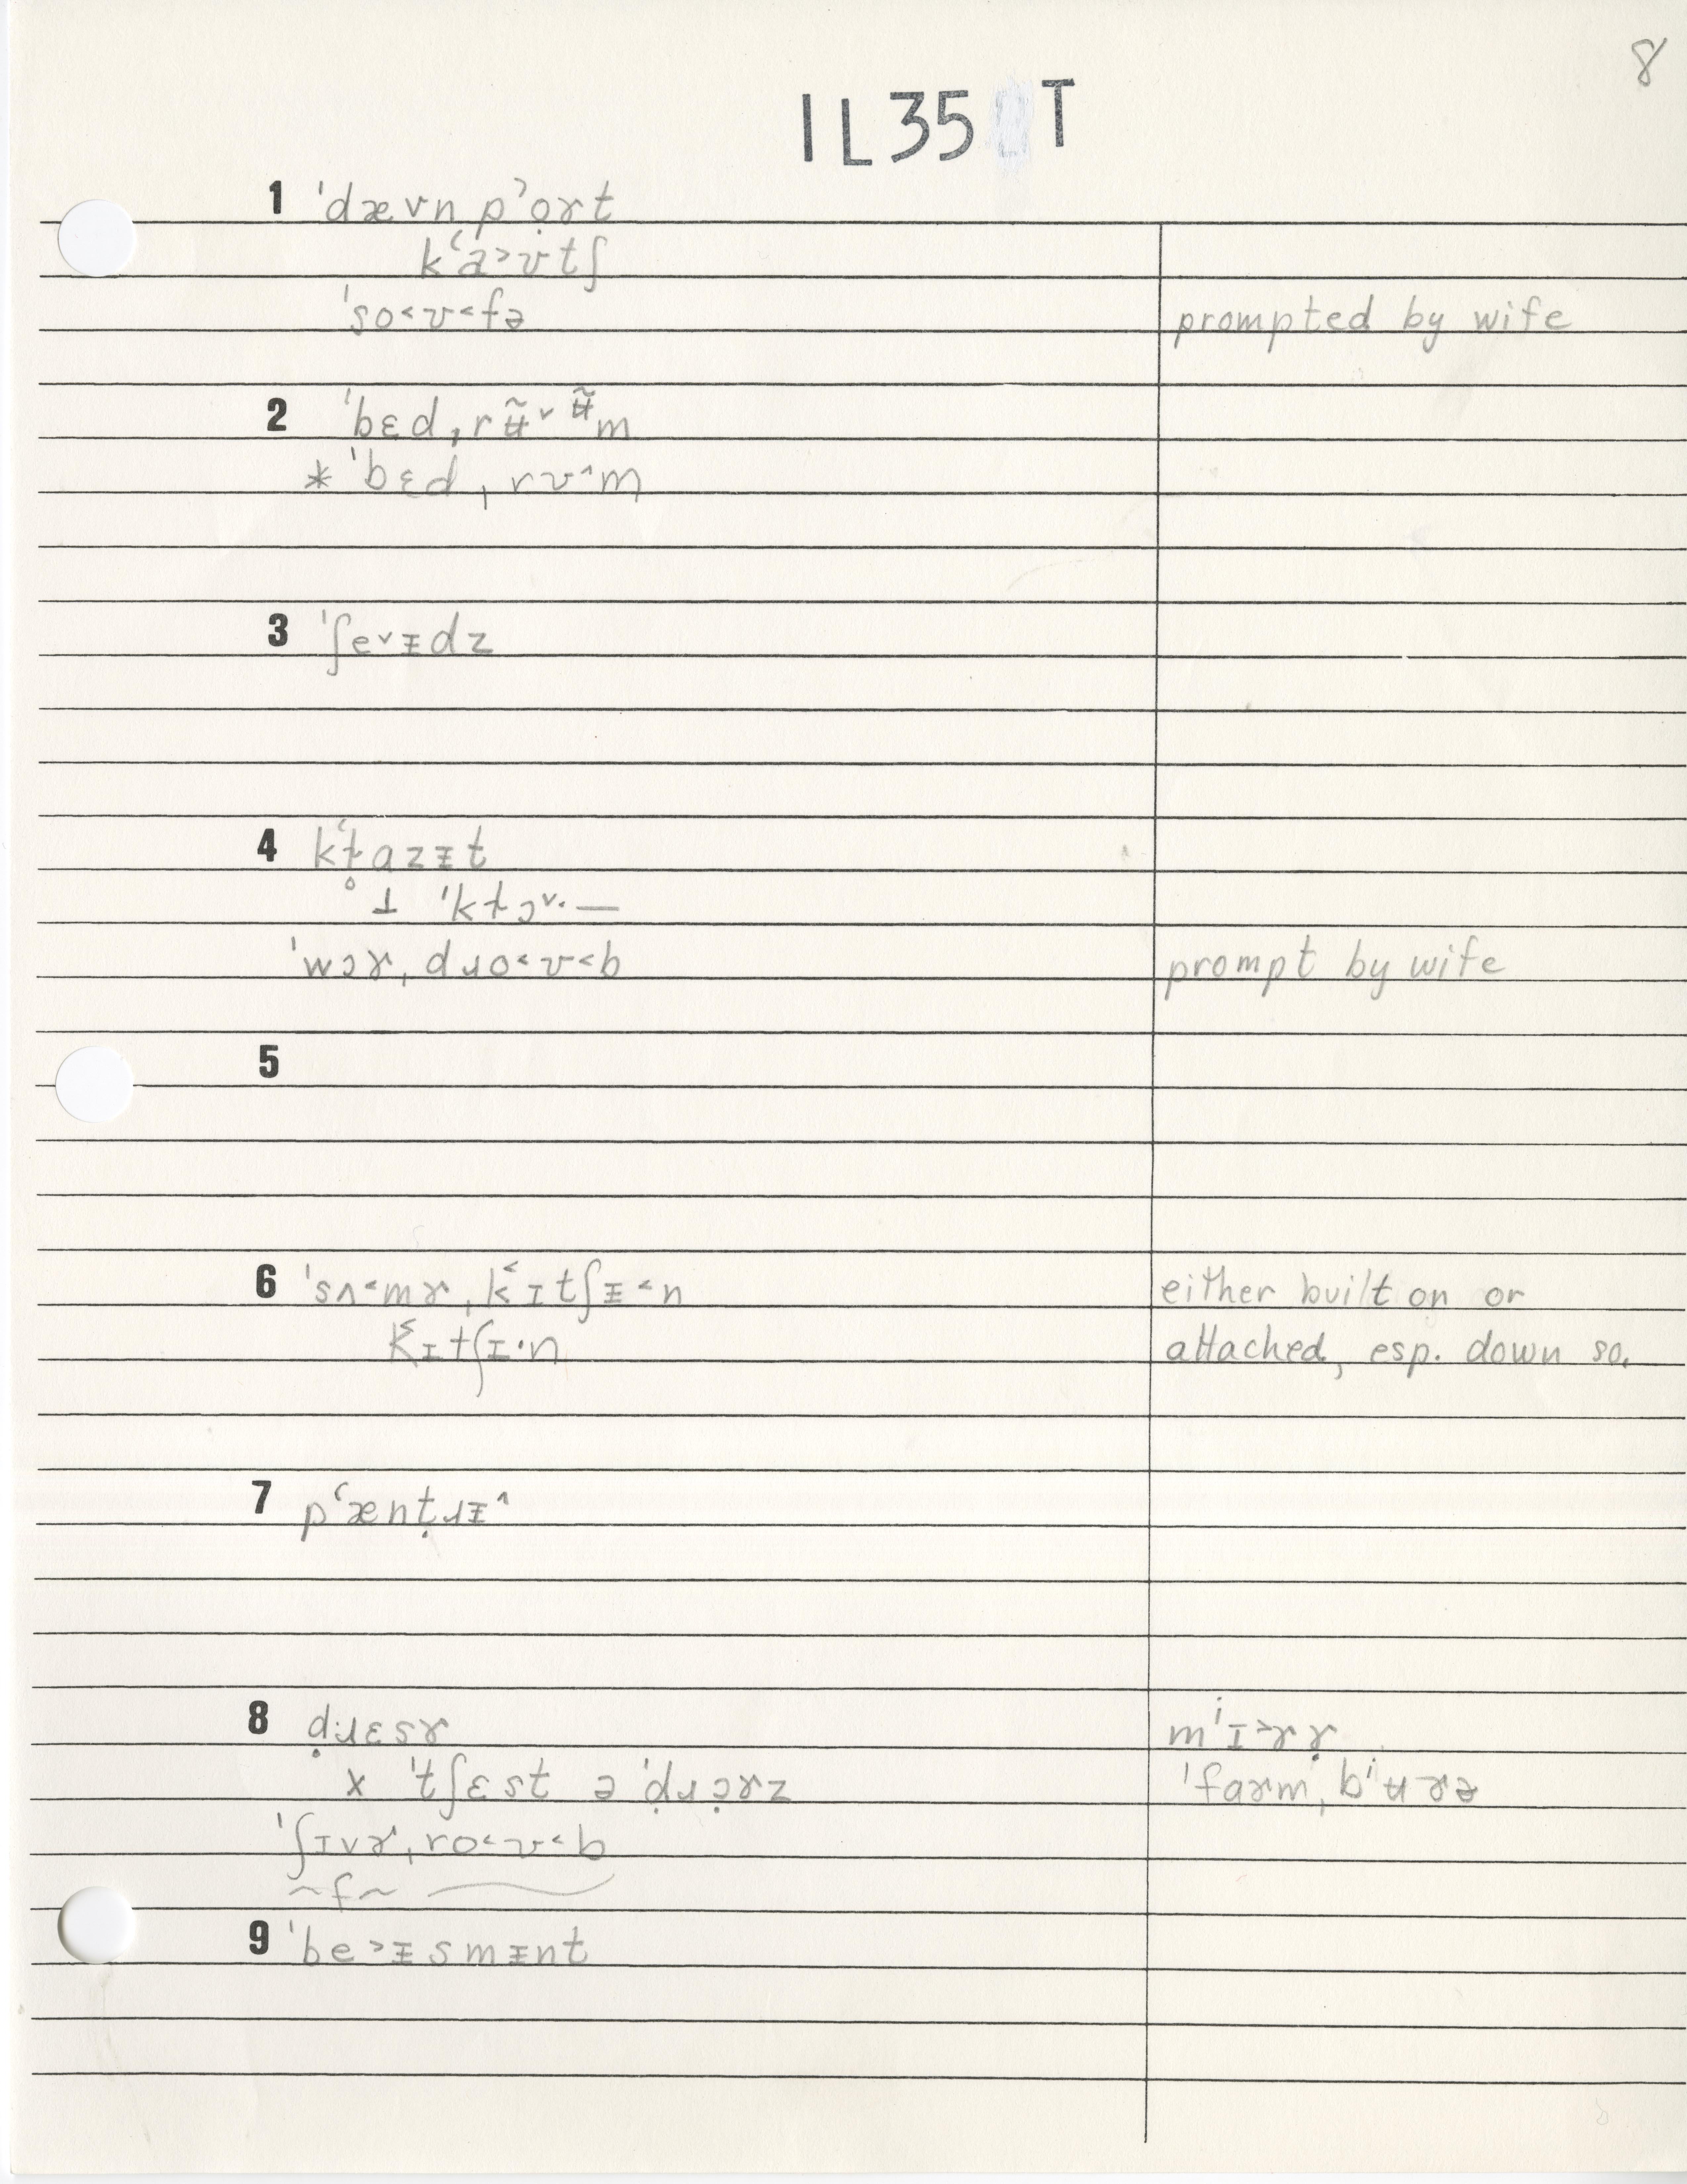 8
IL35 T
1 ˈdævn pʾọɤt
kʿa˃ʊtʃ
ˈso˂ʊ˂fə prompted by wife
2 ˈbɛdˌrʉ̃ˇʉ̃m
* ˈbɛdˌrʊ˄m
3 ˈʃeˇᵻdz
4 kʿɫazᵻt
⊥ ˈkɫɔˇ· —
ˈwɔɤˌdɹo˂ʊ˂b prompt by wife
5
6 ˈsʌ˂mɤˌkʿɪtʃᵻ˂n either built on or
kʿɪtʃɪ·n attached, esp. down so.
7 pʿænṭɹᵻ˄
8 ḍɹɛsɤ mⁱɪ˃ɤɤ̣
x ˈtʃɛst ə ˈḍɹɔ̣ɤz ˈfaɤmˌbⁱʉɤə
ˈʃɪvɤˌro˂ʊ˂b
~f~
9 ˈbe˃ᵻsmᵻnt